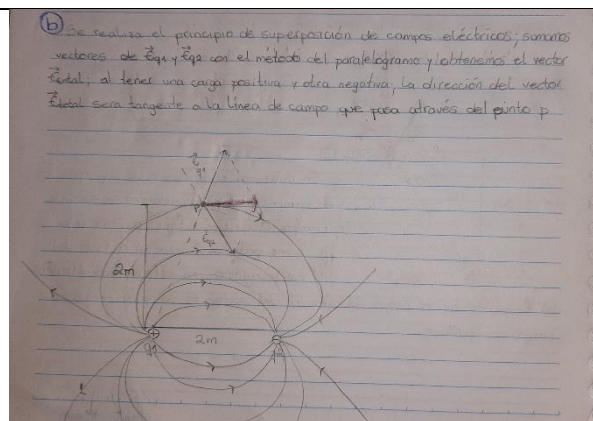 b) Se realiza el principio de superposición de campos eléctricos; sumamos
vectores de Eq1 y Eq2 con el método del paralelogramo y obtenemos el vector
Etotal; al tener una carga positiva y otra negativa, la dirección del vector
Etotal sera tangente a la línea de campo que pasa através del punto p
E q1
P
Eq2
2m
+
2m
-
q1
q2